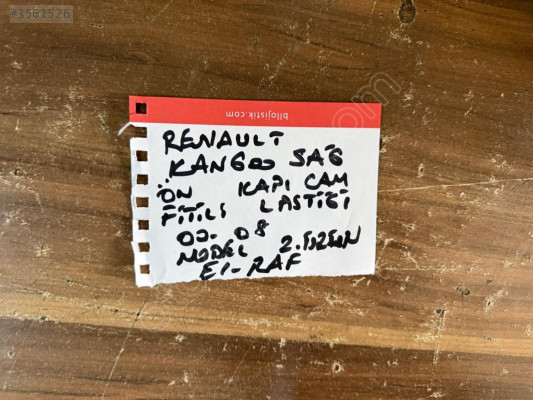 #3561526
bllojistik.com
RENAULT
KANGOO SAĞ
ÖN KAPI CAM
FİTİLİ LASTİĞİ
03-08
MODEL
E1-RAF